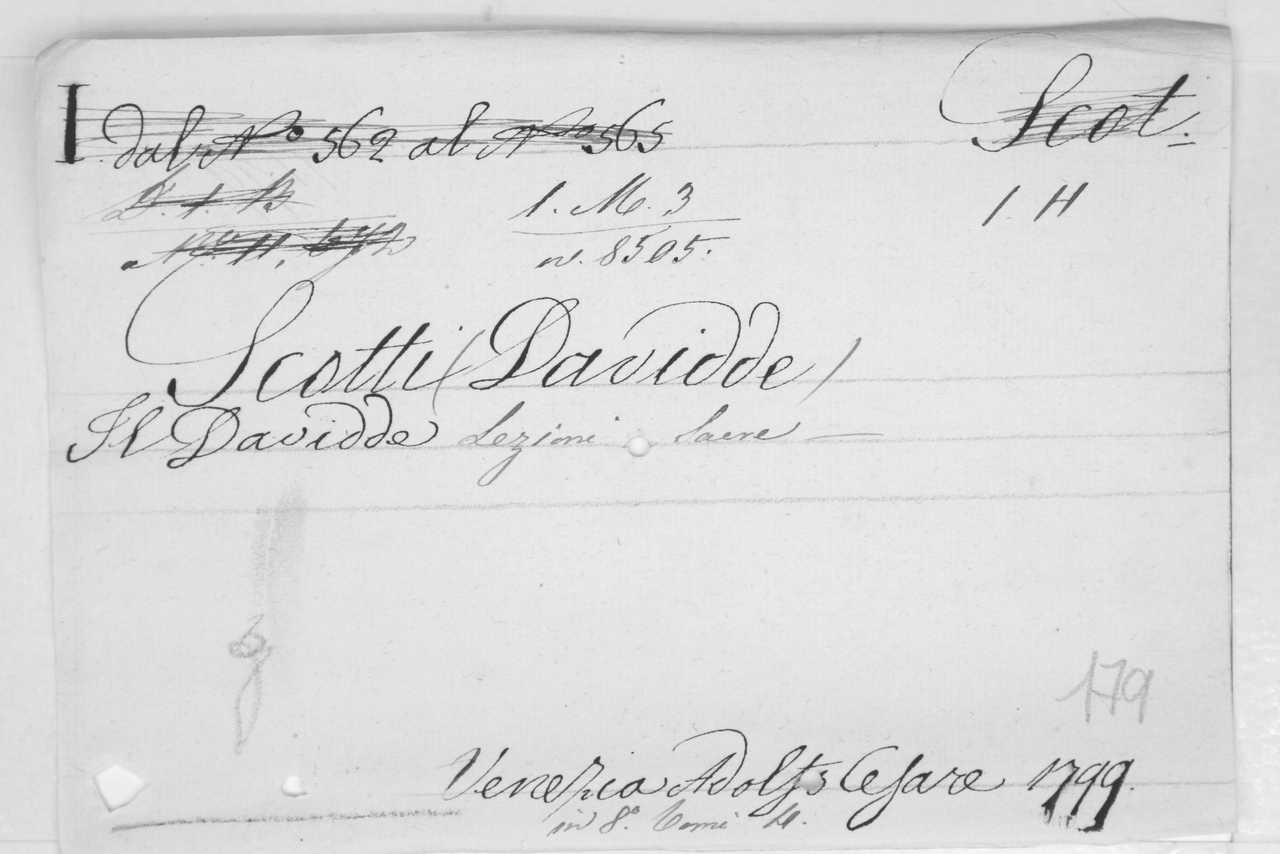 dal N.º 562 al Nº 565 Scot.
D. 1. B 1. M. 3 1. H
n. 8505.
Scotti (Davidde)
Il Davidde Lezioni Sacre —
179
Venezia Adolfo Cesare 1799.
in 8.º Tomi 4.